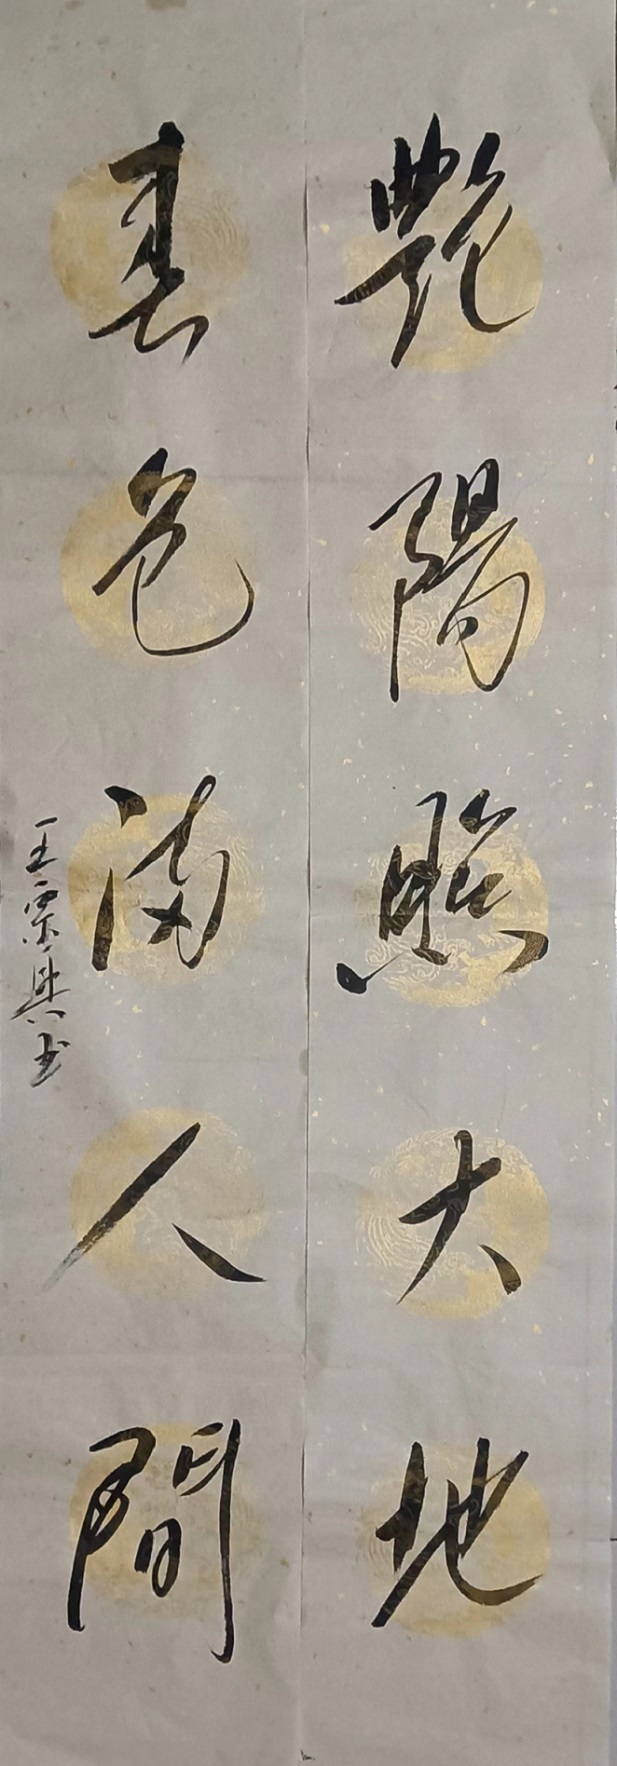 艷陽照大地
春色滿人間
王宗興书